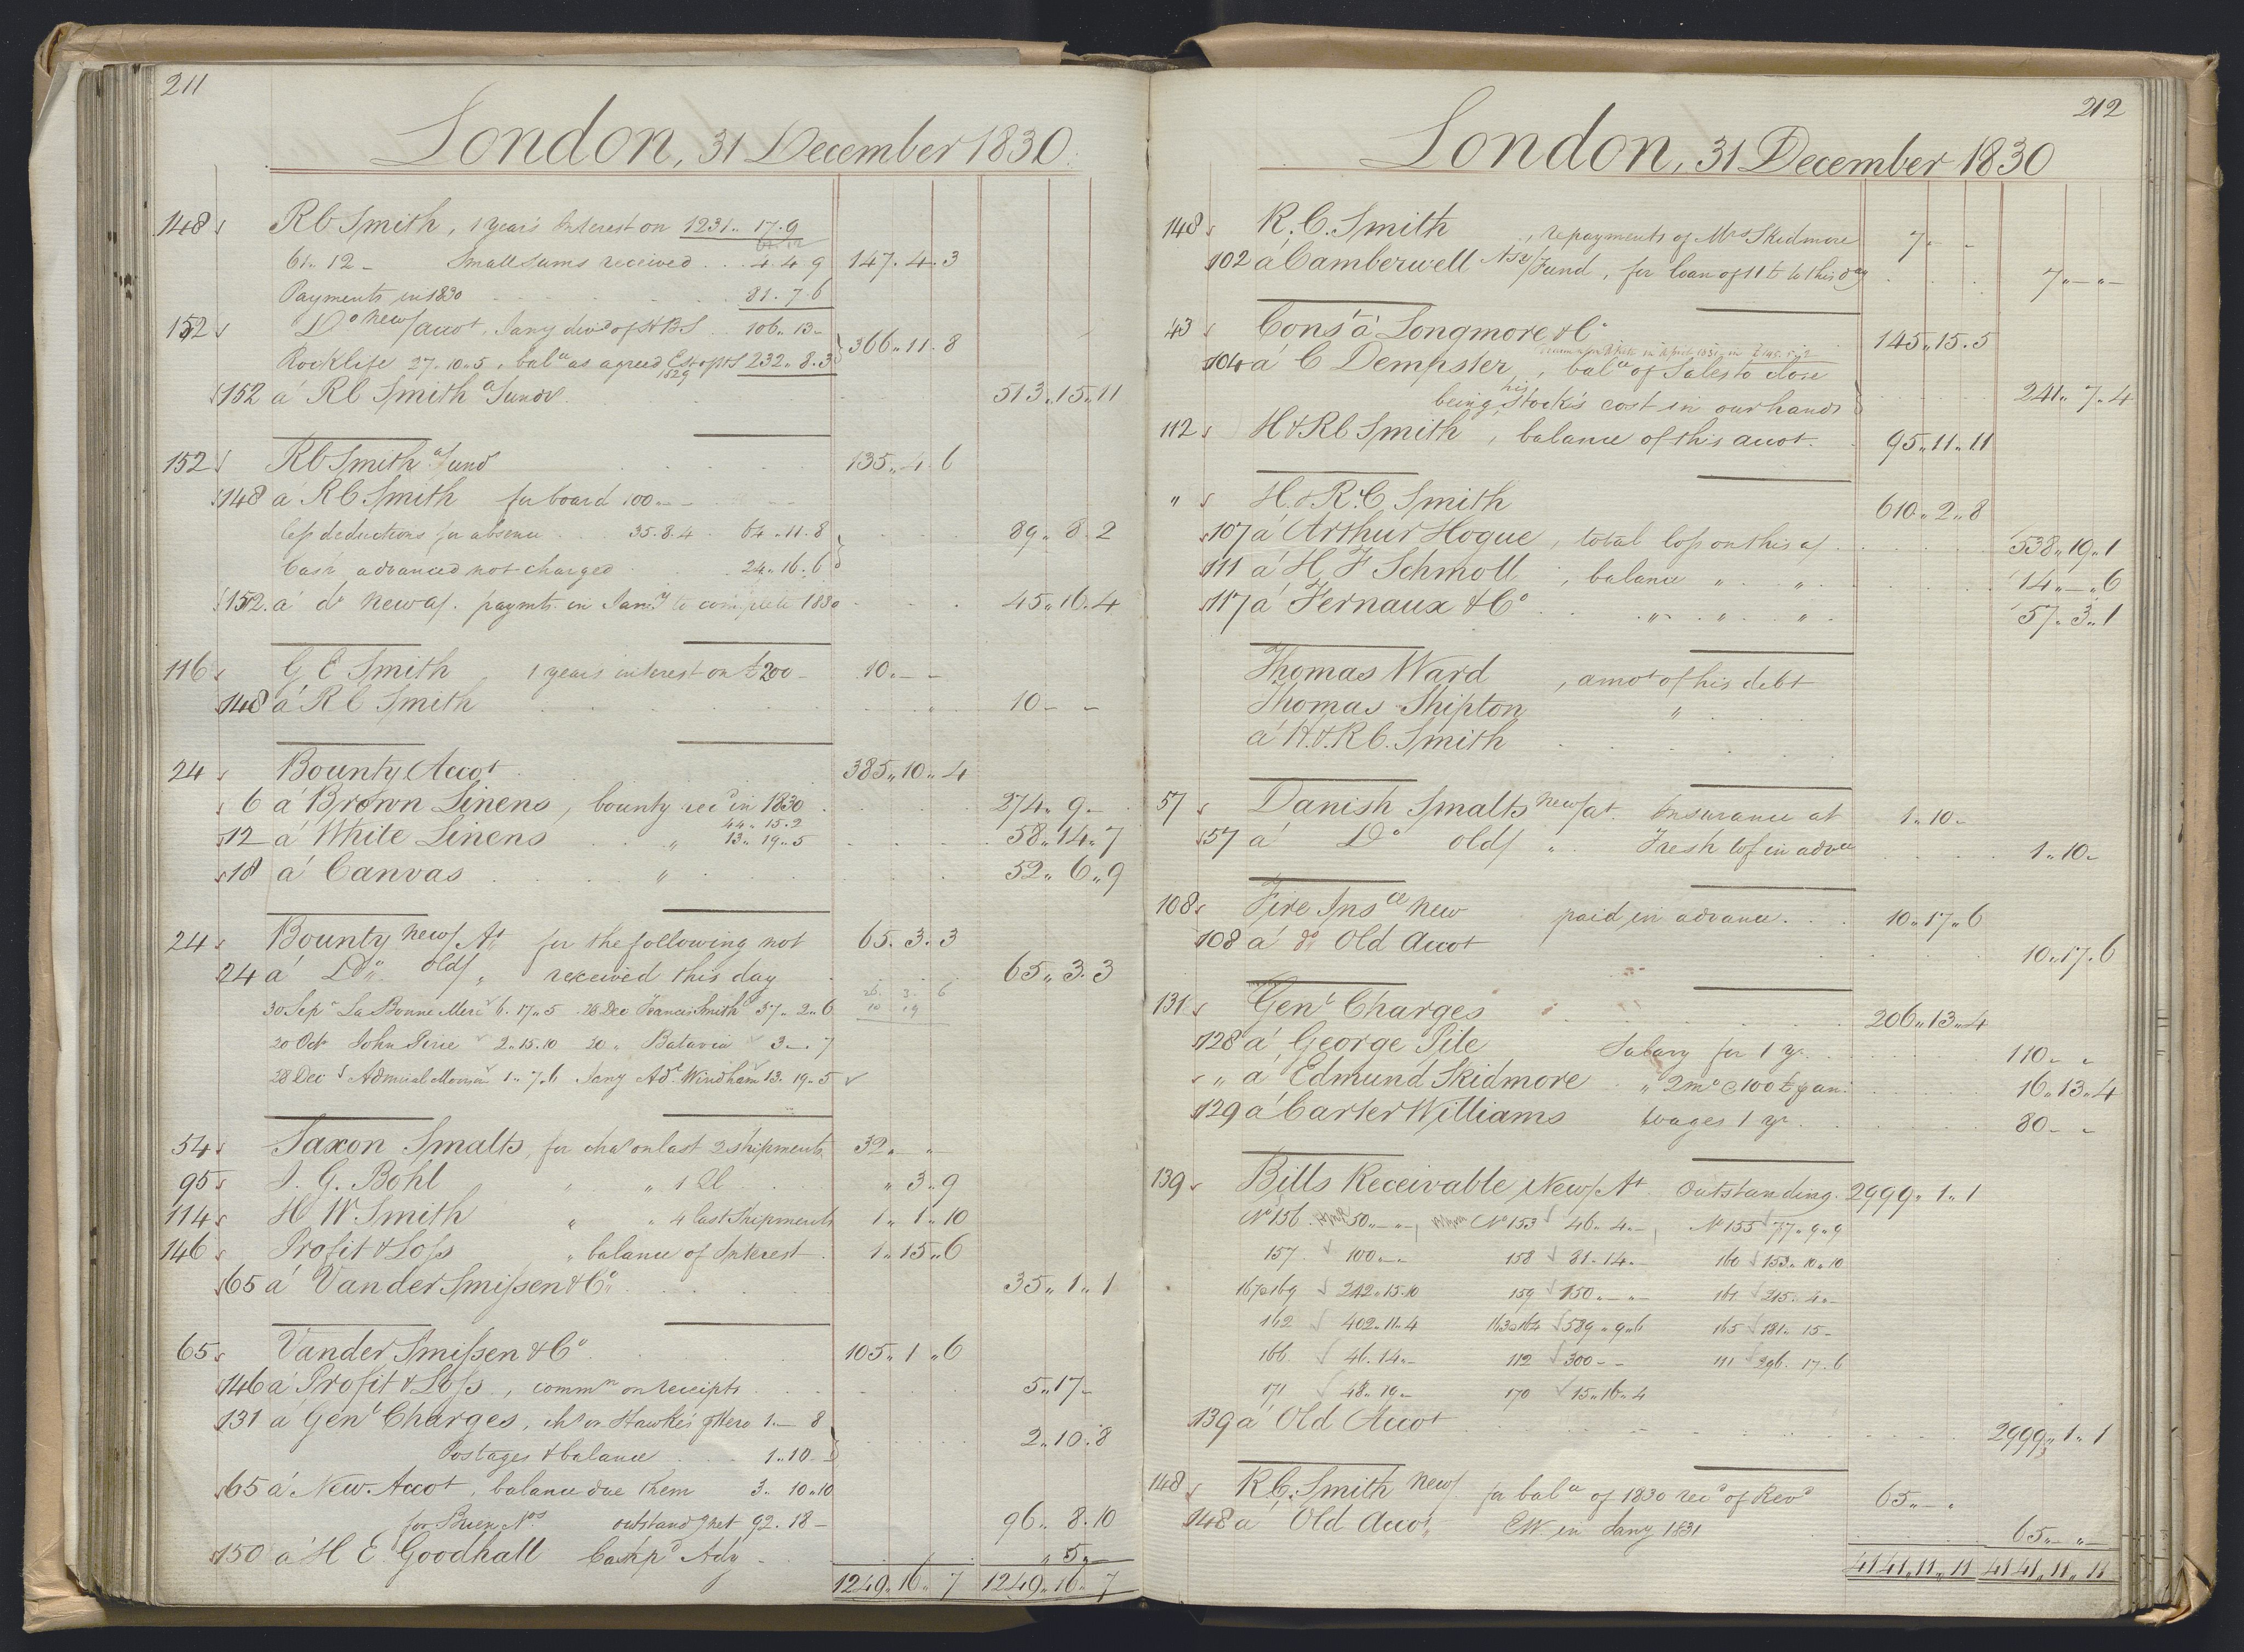 211
London, 31 December 1830.
148 RC Smith, 1 years Interest on 1231.. 17.. 9
61.. 12 - Small Sums received . . . 4. 4. 9 147.. 4.. 3
Payments in 1830 81. 7. 6
152 Do new/ accot, Jany divd of HBS 106.. 13-
Rocklife 27.. 10.. 5, balce as agreed 232.. 8. 3 366.. 11. 8
1529
152 á RC Smith a/ Sundr 513.. 15.. 11
152 RC Smith a/ Sund 135.. 4. 6
148 á RC Smith for board 100.. - -
less deductions for absence . . . 35. 8. 4 . 64.. 11.. 8 89.. 8. 2
Cash advanced not charged 24.. 16.. 6
152. á do new a/. paymts. in Jany to complete 1830 45.. 16.. 4
116 G E Smith 1 years interest on £200 - 10.. - -
148 á RC Smith 10 - -
24 Bounty Accot 385.. 10.. 4
6 á Brown Linens, bounty recd in 1830 274.. 9..-
44.. 15.. 2
12 á White Linens " 13.. 19.. 5 58.. 14.. 7
18 á Canvas " 52.. 6.. 9
24 Bounty new/ At for the following not 65.. 3.. 3
24 á Do.. old/ " received this day 65.. 3. 3
26. 3. 6
30 Sepr La Bonne Mere 6.. 17.. 5 28 Dec Francis Smith 37.. 2.. 6 10 19
20 Octr John Pirie 2.. 15. 10 20 " Batavia 3 -.. 7
28 Dec Admiral Moorsom 1.. 7.. 6 Jany Adl Windham 13.. 19.. 5
54 Saxon Smalts, for chas on last 2 shipments 32.. - " -
95 J. G. Bohl " " 1 " 3.. 9
114 H W Smith " " 4 last Shipments 1.. 1.. 10
146 Profit & Loss " balance of Interest 1.. 15.. 6
65 á Vander Smissen & Co. 35.. 1.. 1
65 Vander Smissen & Co. 105.. 1.. 6
146 á Profit & Loss, commn on receipts 5.. 17..
131 á Genl Charges, chs on Hawkes 1.. - 8 2.. 10.. 8
Postages & balance 1.. 10..-
65 á New Accot, balance due them 3.. 10.. 10
for outstandg net 92.. 18 - 96.. 8.. 10
150 á H E Goodhall Cash pd " 5.. -
1249.. 16.. 7 1249.. 16.. 7
212
London, 31 December 1830
148 R. C. Smith, repayments of Mrs Skidmore 7..- -
102 á Camberwell Fund, for loan of 11£ to this day 7.. - " -
43 Cons. á Longmore & Co 145.. 15.. 5
104 á C Dempster, balce of Sales to close
being his Stock's cost in our hands 241.. 7.. 4
112 H & RC Smith, balance of this accot. 95.. 11.. 11
" H. & R. C. Smith 610.. 2.. 8
107 á Arthur Hogue, total loss on this a/ 538.. 19.. 1
111 á H. F Schmoll, balance " " 14.. -.. 6
117 á Fernaux & Co " " " 57.. 3.. 1
Thomas Ward, amot of his debt
Thomas Shipton "
á H. & RC. Smith
57 Danish Smalts new/ at. Insurance at 1.. 10..-
57 á Do old/ " Fresh Wf in advce 1.. 10..
108 Fire Insce New paid in advance. 10.. 17.. 6
108 á do Old Accot 10.. 17.. 6
131 Genl Charges 206.. 13.. 4
128 á George Pile Salary for 1 yr. 110.. - "
" á Edmund Skidmore " 2 mo @ 100 £ p an. 16.. 13.. 4
129 á Carter Williams Wages 1 yr. 80.. - "
139 Bills Receivable New/ At Outstanding. 2999.. 1.. 1
No 156. 50.. - " -, No 153 46.. 4.. -, No 155 77.. 9.. 9
157. 100.. -.. 158 81.. 14.. - 160 153.. 10.. 10
167@169 242.. 15.. 10 159 150.. - " - 161 215.. 4.. -
162 402.. 11.. 4 163@164 589.. 9.. 6 165 181.. 15 -
166. 46. 14.. - 112 300 - - 111 296. 17.. 6
171 48.. 19.. 170 15.. 16.. 4
139 á Old Accot 2999.. 1.. 1
148 R. C. Smith New/ for balce of 1830 recd of Revd 65.. - "
148 á Old Accot EW. in Jany 1831 65.. - " -
4141.. 11.. 11 4141.. 11.. 11